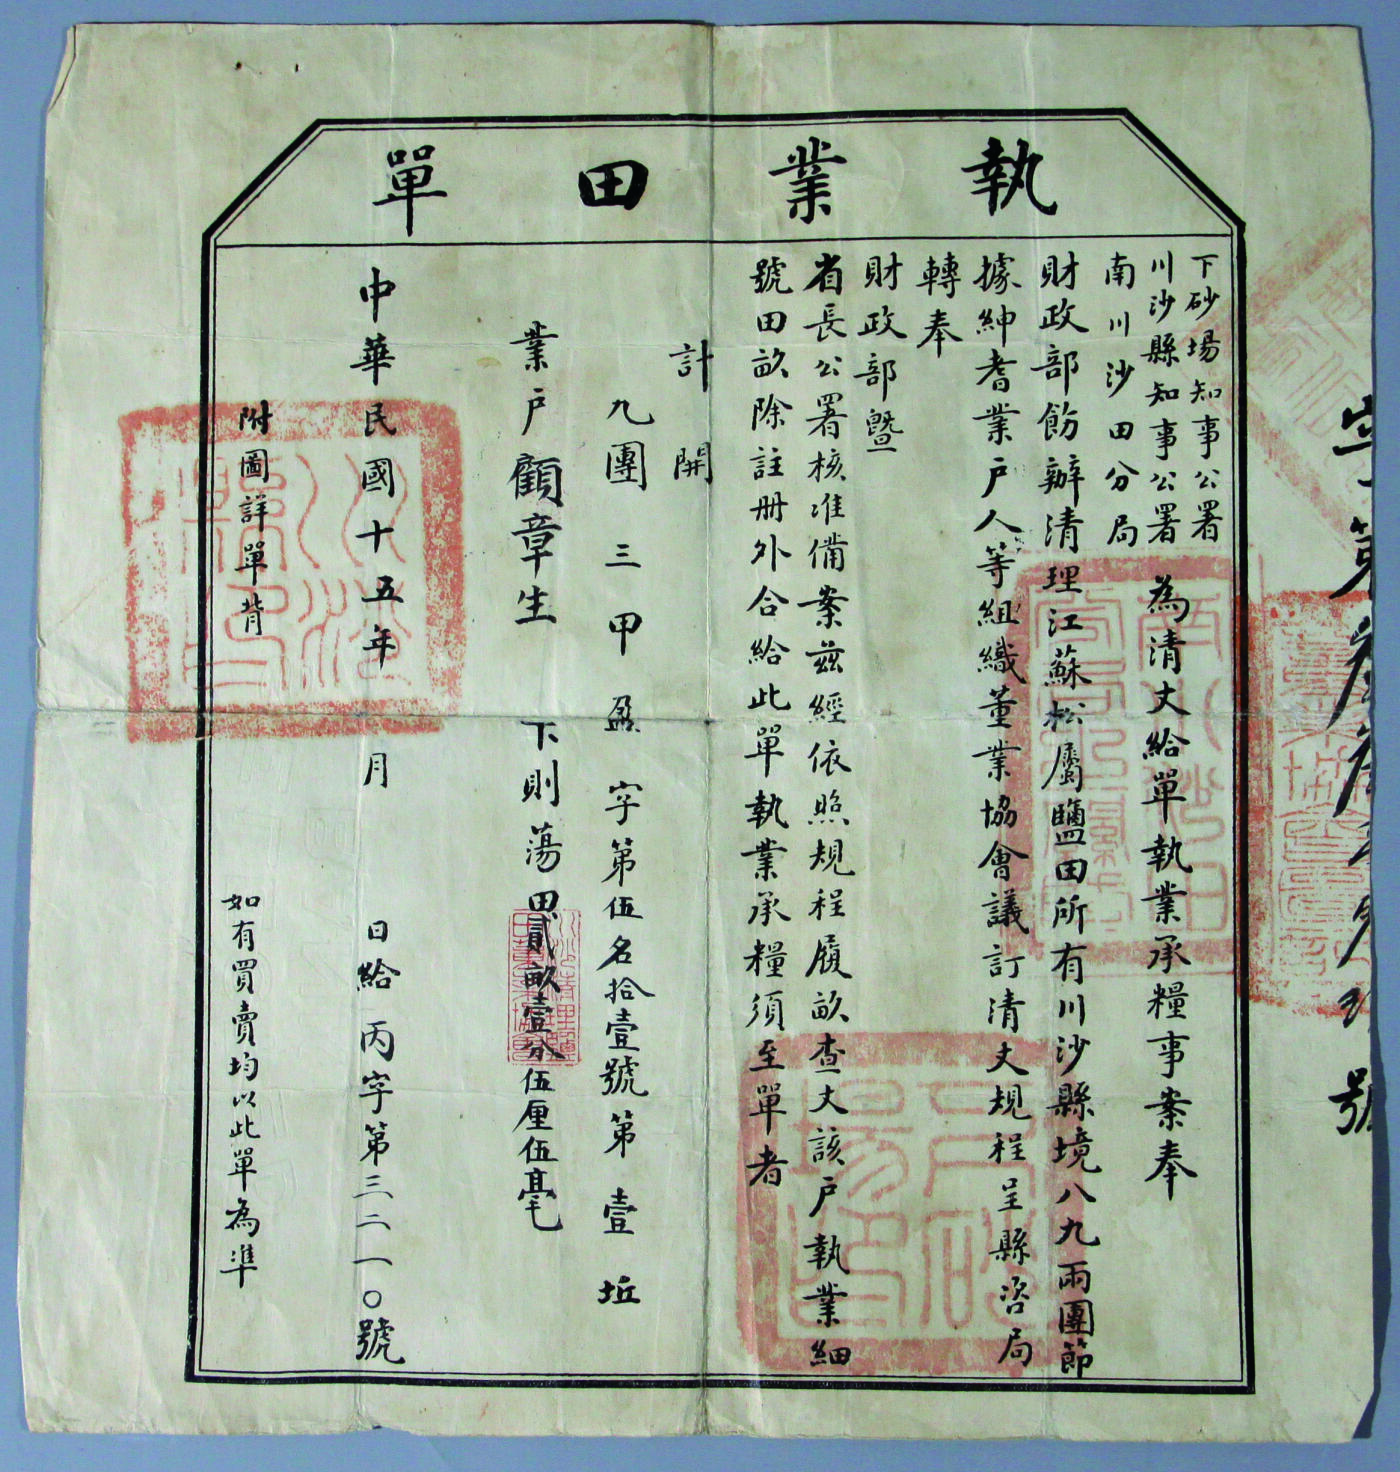 執業田單
下砂場知事公署
川沙縣知事公署
南川沙田分局
為清丈給單執業承糧事案奉
財政部飭辦清理江蘇松屬鹽田所有川沙縣境八九兩團節
據紳耆業戶人等組織董業協會議訂清丈規程呈縣咨局
轉奉
財政部暨
省長公署核准備案茲經依照規程履畝查丈該戶執業細
號田畝除註冊外合給此單執業承糧須至單者
計開
九團三甲盈字第伍名拾壹號第壹坵
業戶顧章生 下則蕩田貳畝壹分伍厘伍毫
中華民國十五年 月 日給丙字第三二一〇號
附圖詳單背
如有買賣均以此單為準